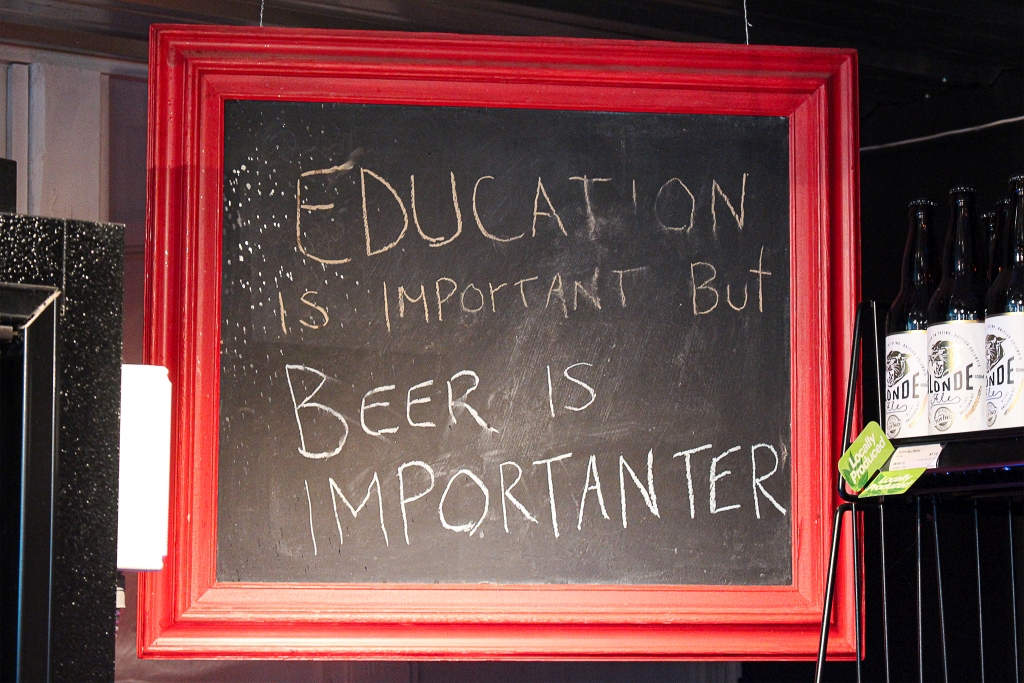 EDUCATION
IS IMPORTANT BUt
BEER IS
IMPORTANTER
LONDE
Ale
Locally
Produced